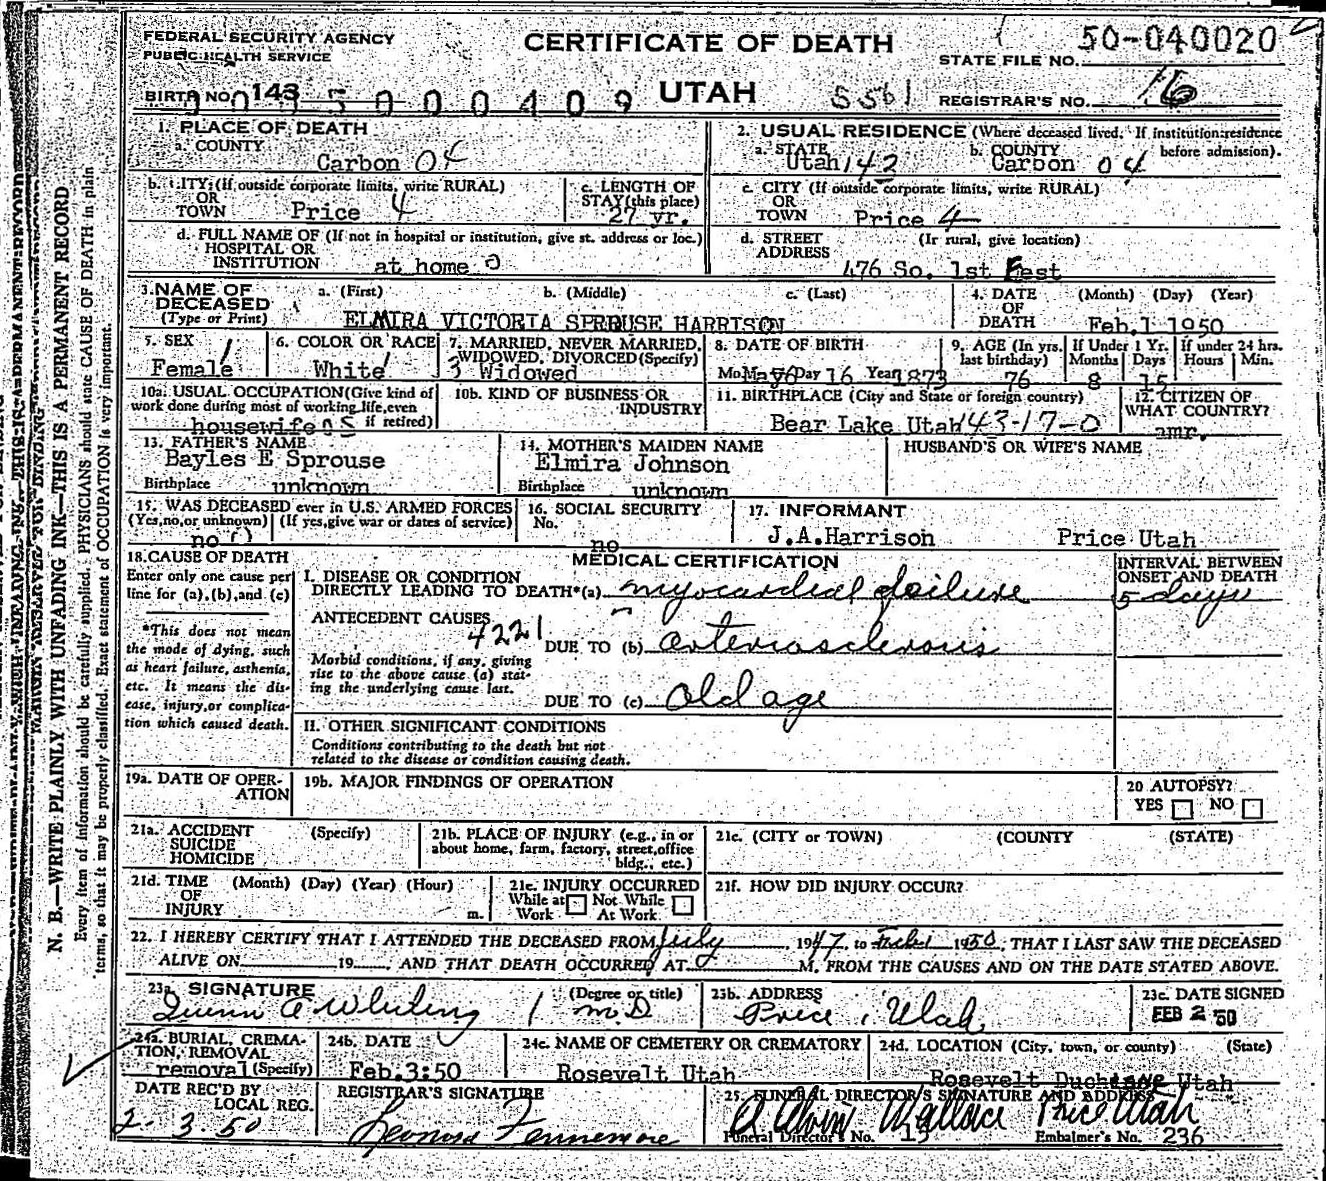 FEDERAL SECURITY AGENCY
PUBLIC HEALTH SERVICE
CERTIFICATE OF DEATH
50-040020
STATE FILE NO.
BIRTH NO. 143
000409
UTAH
5561
REGISTRAR'S NO. 16
1. PLACE OF DEATH
a. COUNTY
Carbon 04
2. USUAL RESIDENCE (Where deceased lived. If institution: residence before admission).
a. STATE Utah 142
b. COUNTY Carbon 04
b. CITY (If outside corporate limits, write RURAL)
OR
TOWN Price 4
c. LENGTH OF
STAY (this place)
27 yr.
c. CITY (If outside corporate limits, write RURAL)
OR
TOWN Price 4
d. FULL NAME OF (If not in hospital or institution, give st. address or loc.)
HOSPITAL OR
INSTITUTION at home 0
d. STREET (Ir rural, give location)
ADDRESS
476 So. 1st Eest
3. NAME OF
DECEASED
(Type or Print)
a. (First) b. (Middle) c. (Last)
ELMIRA VICTORIA SPROUSE HARRISON
4. DATE
OF
DEATH
(Month) (Day) (Year)
Feb. 1 1950
5. SEX 1
Female
6. COLOR OR RACE
White 1
7. MARRIED, NEVER MARRIED,
WIDOWED, DIVORCED (Specify)
3 Widowed
8. DATE OF BIRTH
Mo. May Day 16 Year 1873
9. AGE (In yrs.
last birthday)
76
If Under 1 Yr.
Months Days
8 15
If under 24 hrs.
Hours Min.
10a. USUAL OCCUPATION (Give kind of
work done during most of working life, even
if retired)
housewife
10b. KIND OF BUSINESS OR
INDUSTRY
11. BIRTHPLACE (City and State or foreign country)
Bear Lake Utah 43-17-0
12. CITIZEN OF
WHAT COUNTRY?
amr.
13. FATHER'S NAME
Bayles E Sprouse
Birthplace unknown
14. MOTHER'S MAIDEN NAME
Elmira Johnson
Birthplace unknown
HUSBAND'S OR WIFE'S NAME
15. WAS DECEASED ever in U.S. ARMED FORCES
(Yes, no, or unknown) (If yes, give war or dates of service)
no
16. SOCIAL SECURITY
No.
no
17. INFORMANT
J.A.Harrison Price Utah
18. CAUSE OF DEATH
Enter only one cause per
line for (a), (b), and (c)
*This does not mean
the mode of dying, such
as heart failure, asthenia,
etc. It means the dis-
ease, injury, or complica-
tion which caused death.
MEDICAL CERTIFICATION
INTERVAL BETWEEN
ONSET AND DEATH
I. DISEASE OR CONDITION
DIRECTLY LEADING TO DEATH*(a) myocardial failure
5 days
ANTECEDENT CAUSES
4221
DUE TO (b) arteriosclerosis
Morbid conditions, if any, giving
rise to the above cause (a) stat-
ing the underlying cause last.
DUE TO (c) Old age
II. OTHER SIGNIFICANT CONDITIONS
Conditions contributing to the death but not
related to the disease or condition causing death.
19a. DATE OF OPER-
ATION
19b. MAJOR FINDINGS OF OPERATION
20 AUTOPSY?
YES NO
21a. ACCIDENT (Specify)
SUICIDE
HOMICIDE
21b. PLACE OF INJURY (e.g., in or
about home, farm, factory, street, office
bldg., etc.)
21c. (CITY or TOWN) (COUNTY) (STATE)
21d. TIME (Month) (Day) (Year) (Hour)
OF
INJURY m.
21e. INJURY OCCURRED
While at Work Not While At Work
21f. HOW DID INJURY OCCUR?
22. I HEREBY CERTIFY THAT I ATTENDED THE DECEASED FROM July, 1947, to Feb 1 1950, THAT I LAST SAW THE DECEASED
ALIVE ON 19, AND THAT DEATH OCCURRED AT M. FROM THE CAUSES AND ON THE DATE STATED ABOVE.
23a. SIGNATURE (Degree or title)
Quinn A Whiting M.D
23b. ADDRESS
Price, Utah
23c. DATE SIGNED
FEB 2 50
24a. BURIAL, CREMA-
TION, REMOVAL
removal (Specify)
24b. DATE
Feb.3:50
24c. NAME OF CEMETERY OR CREMATORY
Rosevelt Utah
24d. LOCATION (City, town, or county) (State)
Rosevelt Duchesne Utah
DATE REC'D BY
LOCAL REG.
2-3-50
REGISTRAR'S SIGNATURE
Leonord Fennemore
25. FUNERAL DIRECTOR'S SIGNATURE AND ADDRESS
Alvin Wallace Price Utah
Funeral Director's No. 13 Embalmer's No. 236
N. B.—WRITE PLAINLY WITH UNFADING INK—THIS IS A PERMANENT RECORD
Every item of information should be carefully supplied. PHYSICIANS should state CAUSE OF DEATH in plain
terms, so that it may be properly classified. Exact statement of OCCUPATION is very important.